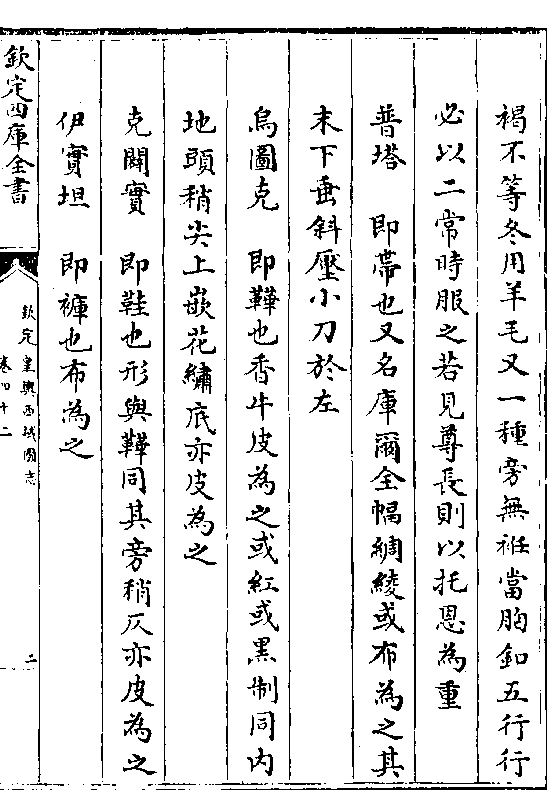 褐不等冬用羊毛又一種旁無袵當胸釦五行行
必以二常時服之若見尊長則以托恩為重
普塔　即帶也又名庫爾全幅綢綾或布為之其
末下垂斜壓小刀於左
烏圖克　即鞾也香牛皮為之或紅或黑制同内
地頭稍尖上嵌花繡底亦皮為之
克闕實　即鞋也形與鞾同其旁稍仄亦皮為之
伊實坦　即褲也布為之
欽定四庫全書
欽定皇輿西域圖志
卷四十二
二